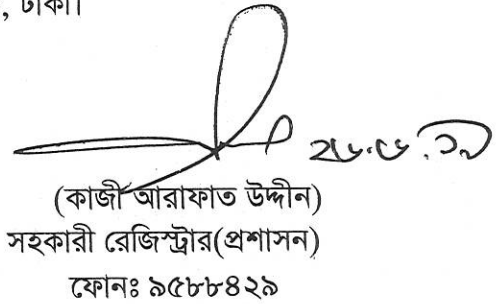 , ঢাকা।
২৮.৮.১৯
(কাজী আরাফাত উদ্দীন)
সহকারী রেজিস্ট্রার(প্রশাসন)
ফোনঃ ৯৫৮৮৪২৯